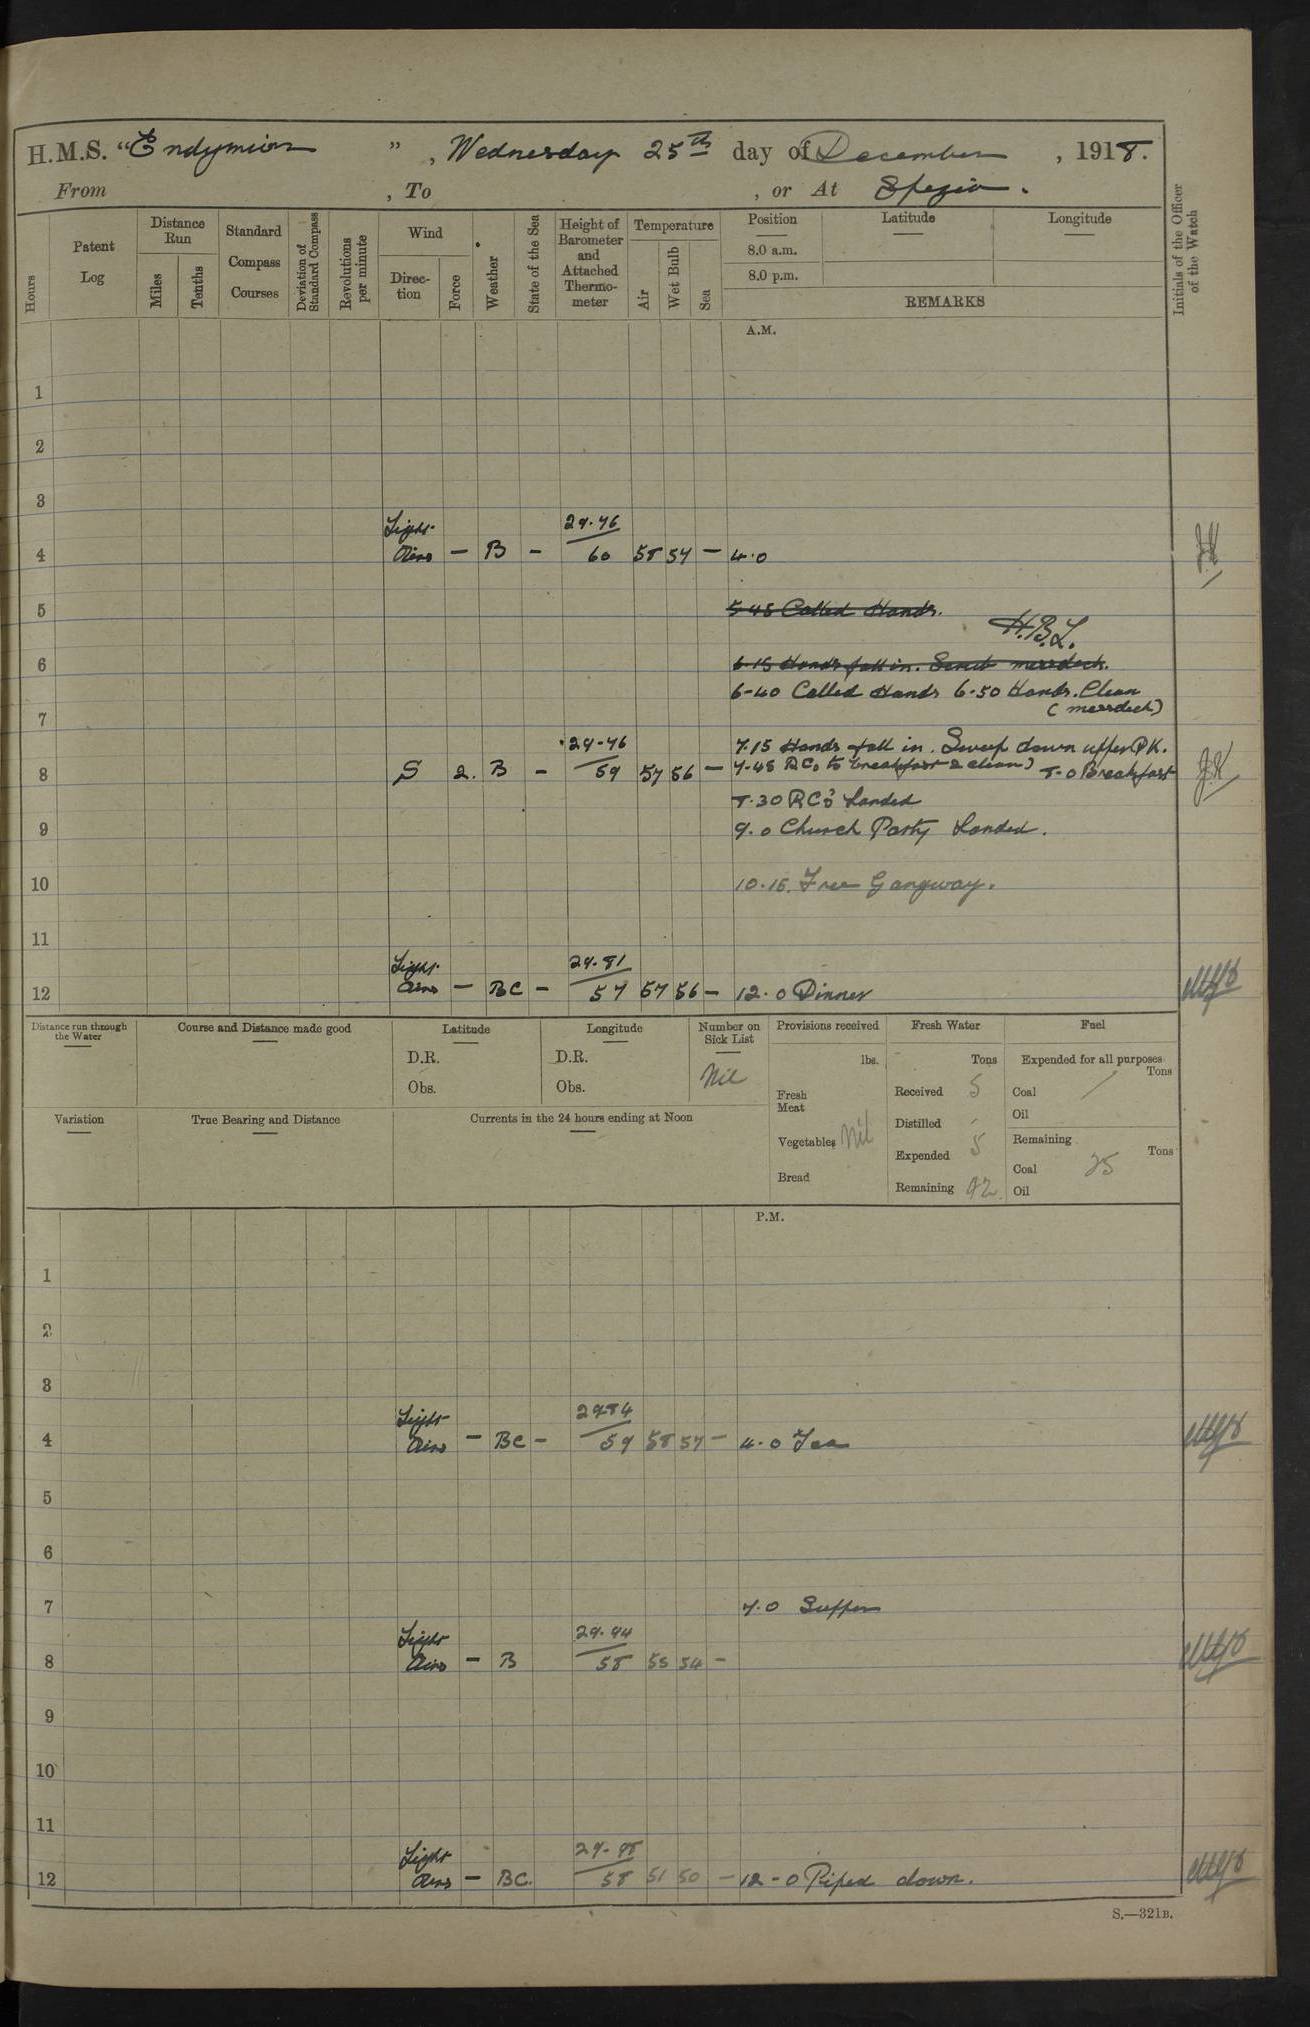 H.M.S. "Endymion", Wednesday 25th day of December, 1918.
From , To , or At Spezia.
Hours
Patent Log
Distance Run
Miles
Tenths
Standard Compass Courses
Deviation of Standard Compass
Revolutions per minute
Wind
Direction
Force
Weather
State of the Sea
Height of Barometer and Attached Thermometer
Temperature
Air
Wet Bulb
Sea
Position
Latitude
Longitude
8.0 a.m.
8.0 p.m.
REMARKS
Initials of the Officer of the Watch
A.M.
1
2
3
Light 29.76
4 Airs - B - 60 58 57 - 4.0
5 5-45 Called Hands.
H.B.L.
6 6-15 Hands fall in. Scrub messdeck.
6-40 Called Hands 6-50 Hands. Clean
7 (messdeck)
29-76 7.15 Hands fall in. Sweep down upper DK.
8 S 2. B - 59 57 56 - 7-45 RCs to breakfast & clean) 8-0 Breakfast
8.30 RC's Landed
9 9.0 Church Party Landed.
10 10.15. Free Gangway.
11
Light 29.81
12 Airs - BC - 57 57 56 - 12.0 Dinner
Distance run through the Water
Course and Distance made good
Latitude
D.R.
Obs.
Longitude
D.R.
Obs.
Number on Sick List
Nil
Provisions received
lbs.
Fresh Meat
Vegetables Nil
Bread
Fresh Water
Tons
Received 5
Distilled -
Expended 5
Remaining 92
Fuel
Expended for all purposes
Tons
Coal /
Oil
Remaining
Tons
Coal 25
Oil
Variation
True Bearing and Distance
Currents in the 24 hours ending at Noon
P.M.
1
2
3
Light 29.84
4 Airs - BC - 59 58 57 - 4.0 Tea
5
6
7 7.0 Supper
Light 29.94
8 Airs - B 58 55 54 -
9
10
11
Light 29-98
12 Airs - BC. 58 51 50 - 12-0 Piped down.
S.—321B.